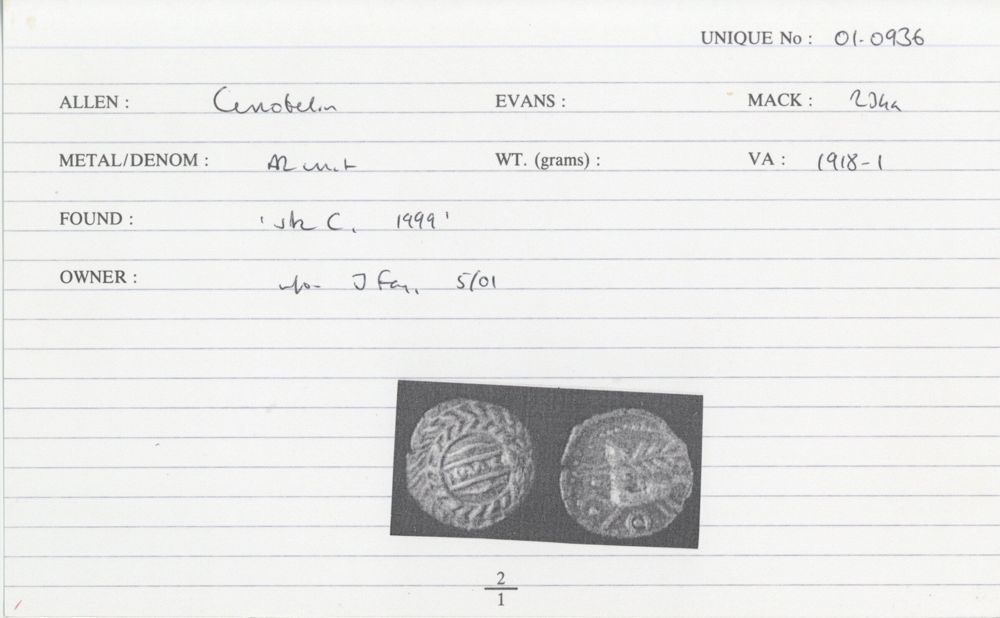 UNIQUE No : 01-0936
ALLEN : Cunobelin EVANS : MACK :
METAL/DENOM : AR unit WT. (grams) : VA : 1918-1
FOUND : ' C, 1999'
OWNER : J Fox, 5/01
2
1